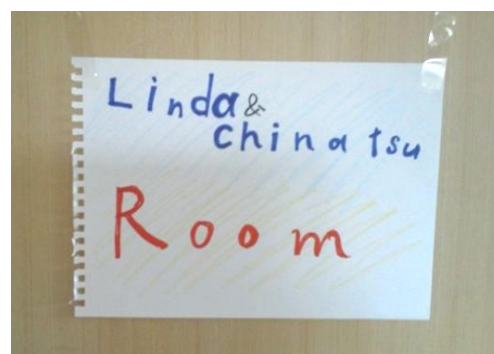 Linda &
Chinatsu
Room